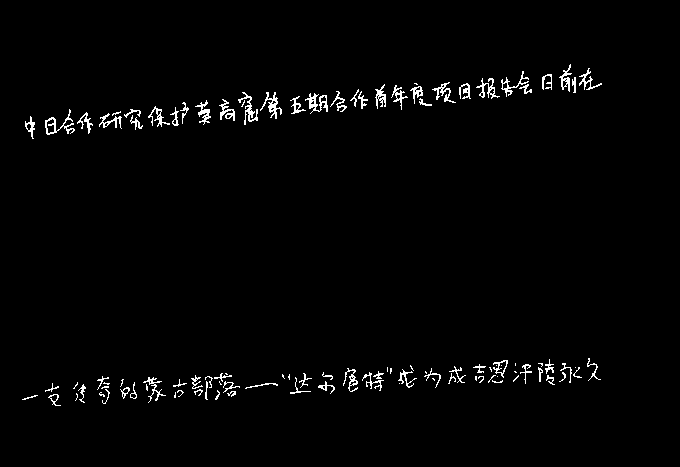 中日合作研究保护莫高窟第五期合作首年度项目报告会日前在
一支传奇的蒙古部落——“达尔扈特”成为成吉思汗陵永久